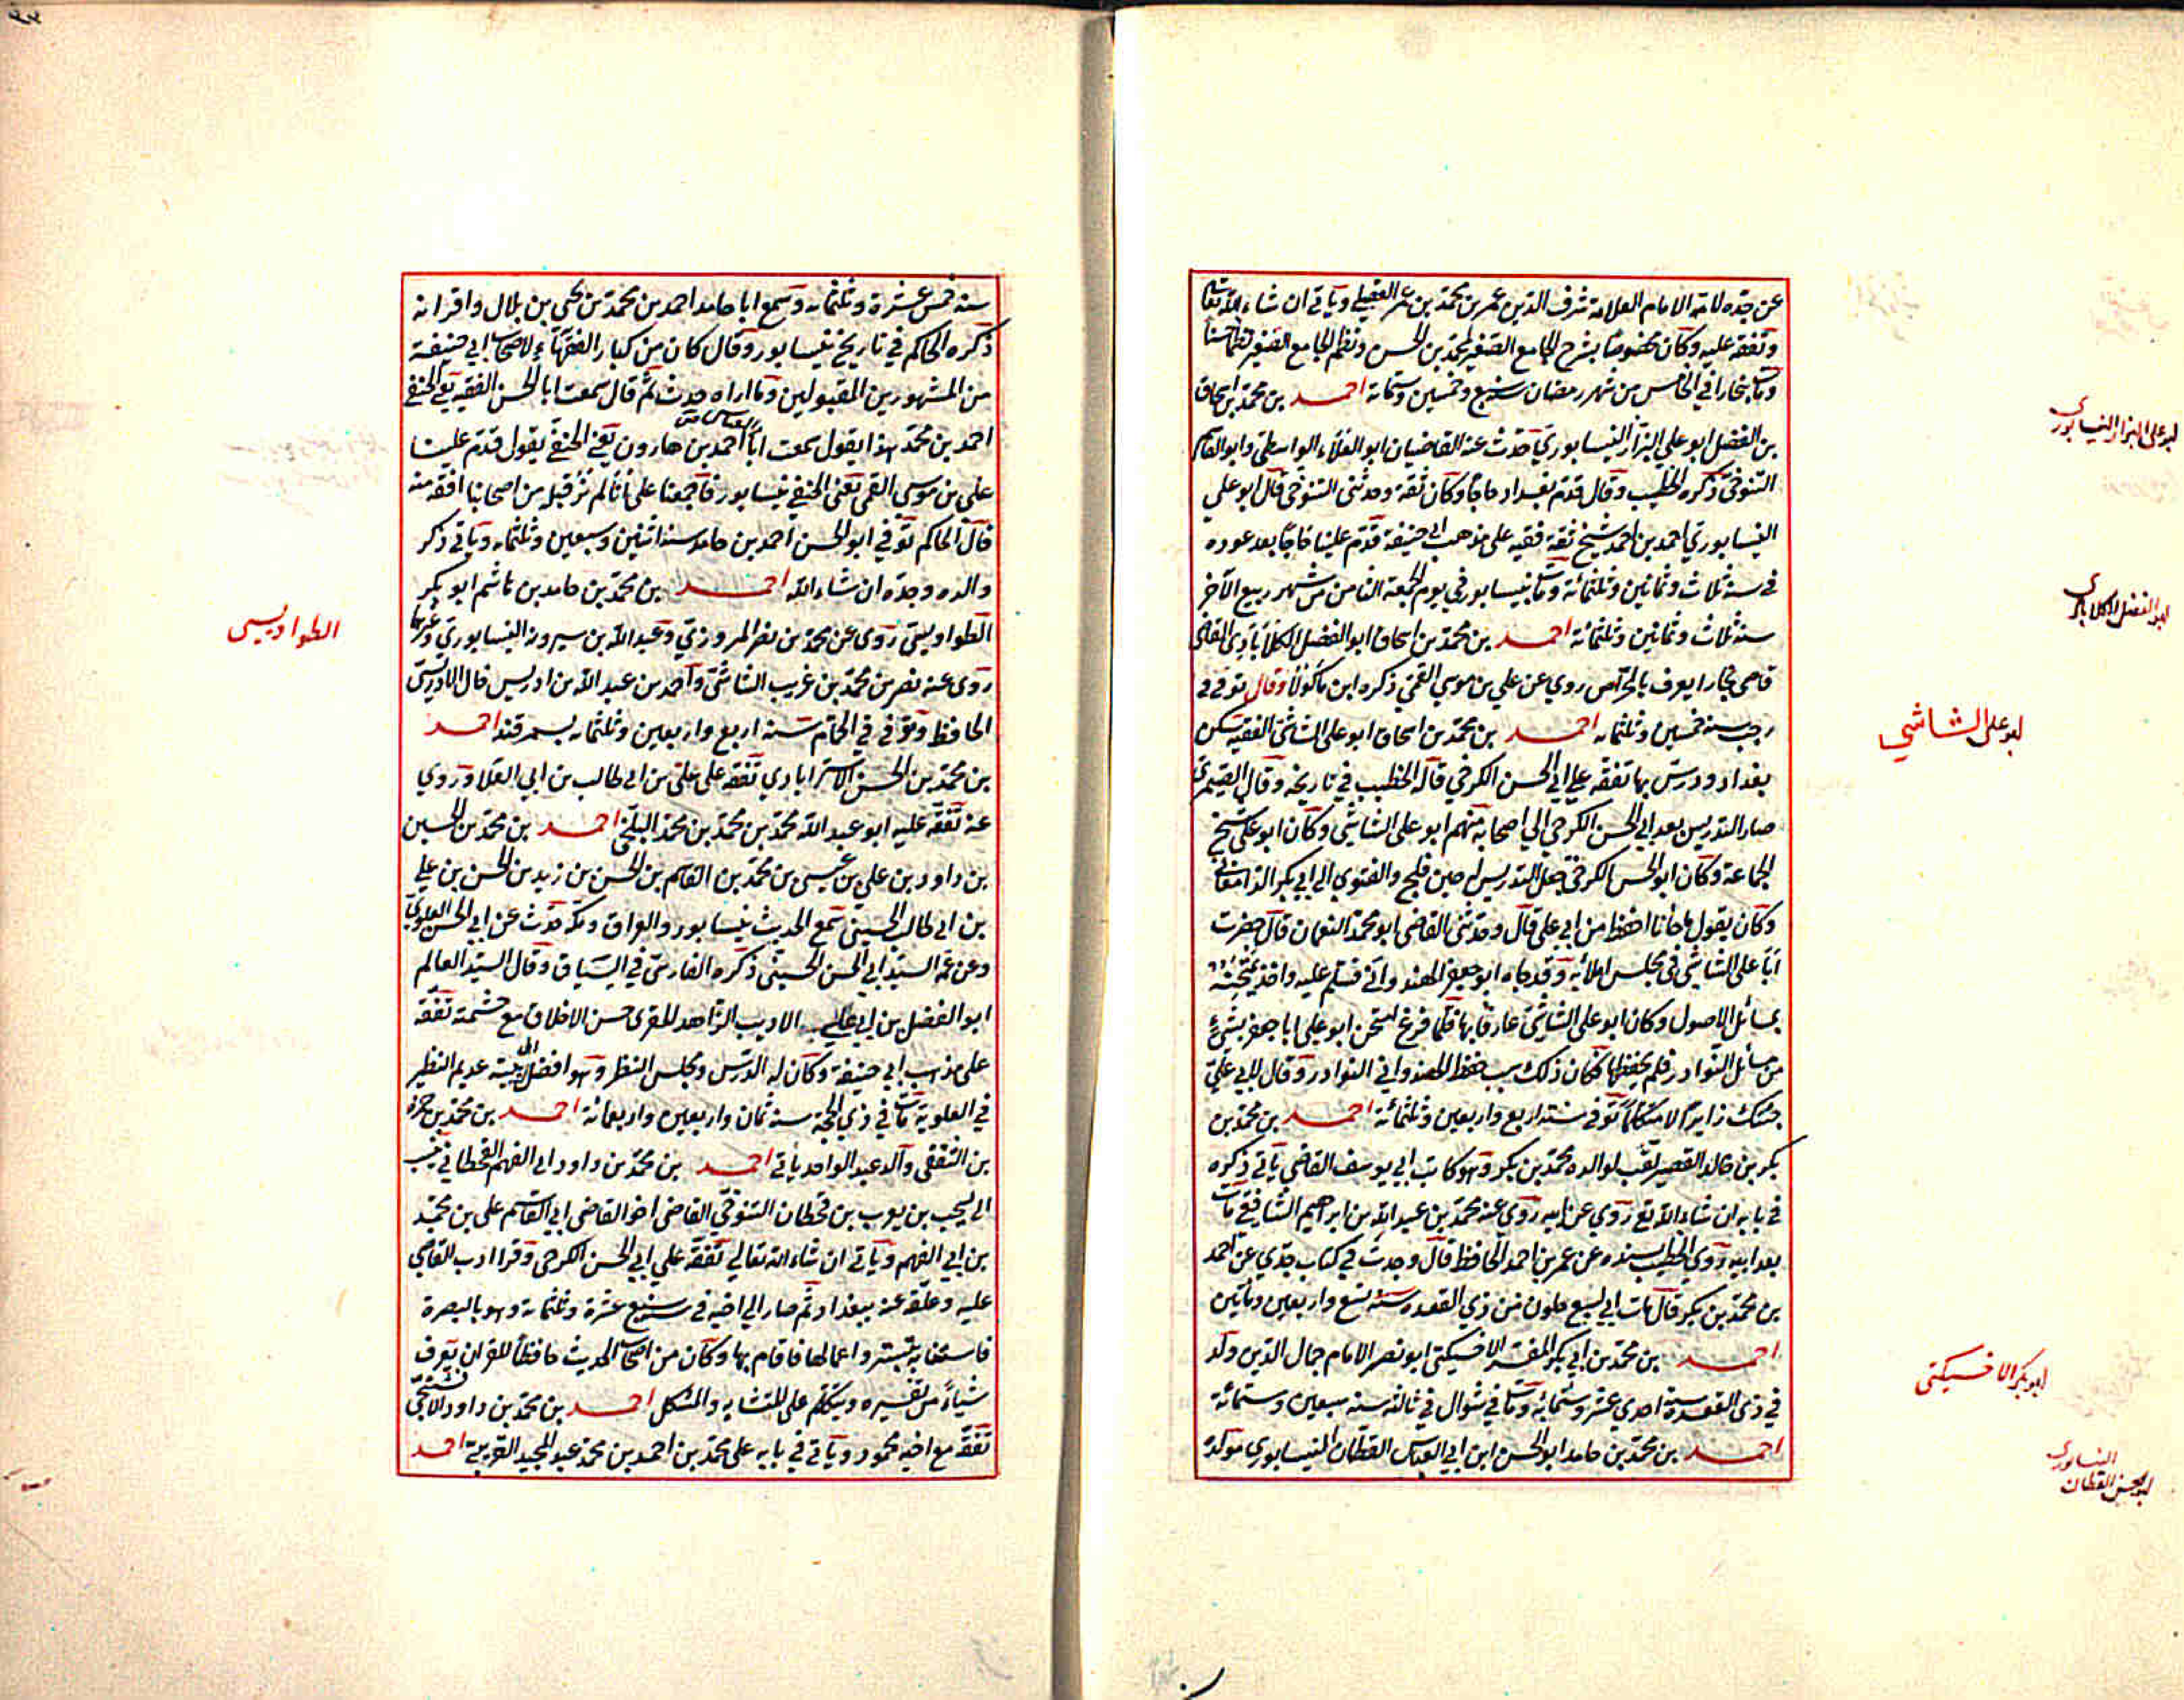 عن جده لامه الامام العلامة شرف الدين عمر بن محمد بن عمر العقيلي وياتي ان شاء الله تعالى
وتفقه عليه وكان مخصوصا بشرح الجامع الصغير لمحمد بن الحسن ونظم الجامع الصغير نظما حسنا
ومات ببخارا في الخامس من شهر رمضان سنة سبع وخمسين وستمائة احمد بن محمد بن اسحاق
بن الفضل ابو علي البزاز النيسابوري حدث عنه القاضيان ابو العلاء الواسطي وابو القاسم
التنوخي ذكره الخطيب وقال قدم بغداد حاجا وكان ثقة وحدثني التنوخي قال ابو علي
النيسابوري احمد بن احمد شيخ ثقة فقيه على مذهب ابي حنيفة قدم علينا حاجا بعد عوده
في سنة ثلاث وثمانين وثلثمائة ومات بنيسابور في يوم الجمعة الثامن من شهر ربيع الآخر
سنة ثلاث وثمانين وثلثمائة احمد بن محمد بن اسحاق ابو الفضل الكلاباذي القاضي
قاضي بخارا يعرف روي عن علي بن موسي القمي ذكره ابن ماكولا وقال توفي في
رجب سنة خمسين وثلثمائه احمد بن محمد بن اسحاق ابو علي الشاشي الفقيه سكن
بغداد ودرس بها تفقه علي ابي الحسن الكرخي قاله الخطيب في تاريخه وقال الصيمري
صار التدريس بعد ابي الحسن الكرخي الي اصحابه منهم ابو علي الشاشي وكان ابو علي شيخ
الجماعة وكان ابو الحسن الكرخي جعل التدريس له حين فلج والفتوي الي ابي بكر الدامغاني
وكان يقول ما جاءنا احفظ من ابي علي قال وحدثني القاضي ابو محمد النعمان قال حضرت
ابا علي الشاشي في مجلس املائه وقد جاه ابو جعفر الهندواني فسلم عليه واخذ يمتحنه
بمسائل الاصول وكان ابو علي الشاشي عارفا بها فلما فرغ امتحن ابو علي ابا جعفر بشيء
من مسائل النوادر فلم يحفظها فكان ذلك سبب حفظ الهندواني النوادر وقال لابي علي
جئتك زايرا لا متكلما توفي سنة اربع واربعين وثلثمائة احمد بن محمد بن
بكر بن خالد القصير لقب لوالده محمد بن بكر وهو كاتب ابي يوسف القاضي ياتي ذكره
في بابه ان شاء الله تع روي عن ابيه روي عنه محمد بن عبد الله بن ابراهيم الشافعي مات
بعد ابيه روي الخطيب بسنده عن عمر بن احمد الحافظ قال وجدت في كتاب جدي عن احمد
بن محمد بن بكر قال مات ابي لسبع خلون من ذي القعده سنة تسع واربعين ومأتين
احمد بن محمد بن ابي بكر الاخسيكتي ابو نصر الامام جمال الدين ولد
في ذي القعدة سنة احدي عشر وستمائة ومات في شوال في ثالثه سنة سبعين وستمائة
احمد بن محمد بن حامد ابو الحسن ابن ابي العباس القطان النيسابوري مولده
ابو علي البزاز النيسابوري
ابو الفضل الكلاباذي
ابو علي الشاشي
ابو بكر الاخسيكتي
النيسابوري
ابو الحسن القطان
سنه خمس عشرة وثلثمائه وسمع ابا حامد احمد بن محمد بن يحيي بن بلال واقرانه
ذكره الحاكم في تاريخ نيسابور وقال كان من كبار الفقهاء لاصحاب ابي حنيفة
من المشهورين المقبولين وما اراه حدث ثم قال سمعت ابا الحسن الفقيه يعني الحنفي
احمد بن محمد هذا يقول سمعت ابا العباس احمد بن هارون يعني الحنفي يقول قدم علينا
علي بن موسي القمي يعني الحنفي نيسابور فاجمعنا علي اننا لم نر قبله من اصحابنا افقه منه
قال الحاكم توفي ابو الحسن احمد بن حامد سنة اثنين وسبعين وثلثمائه وياتي ذكر
والده وجده ان شاء الله احمد بن محمد بن حامد بن هاشم ابو بكر
الطواويسي روي عن محمد بن نصر المروزي وعبد الله بن سيرويه النيسابوري وغيرهما
روي عنه نصر بن محمد بن غريب الشاشي واحمد بن عبد الله بن ادريس قال الادريسي
الحافظ وتوفي في الحمام سنة اربع واربعين وثلثمائه بسمرقند احمد
بن محمد بن الحسن الاستراباذي تفقه علي علي بن ابي طالب بن ابي العلا وروي
عنه تفقه عليه ابو عبد الله محمد بن محمد بن محمد البلخي احمد بن محمد بن الحسين
بن داود بن علي بن عيسي بن محمد بن القاسم بن الحسن بن زيد بن الحسن بن علي
بن ابي طالب الحسني سمع الحديث بنيسابور والعراق ومكة حدث عن ابي الحسن العلوي
وعن عمه السيد ابي الحسن الحسني ذكره الفارسي في السياق وقال السيد العالم
ابو الفضل بن ابي علي الاديب الزاهد المقري حسن الاخلاق مع حشمته تفقه
علي مذهب ابي حنيفة وكان له الدرس ومجلس النظر وهو افضل اهل بيته عديم النظير
في العلوية مات في ذي الحجة سنة ثمان واربعين واربعمائة احمد بن محمد بن حمزة
بن الثقفي والد عبد الواحد ياتي احمد بن محمد بن داود ابي الفهم القحطاني ينسب
الي يشجب بن يعرب بن قحطان التنوخي القاضي اخو القاضي ابي القاسم علي بن محمد
بن ابي الفهم وياتي ان شاء الله تعالي تفقه علي ابي الحسن الكرخي وقرا ادب القاضي
عليه وعلقه عنه ببغداد ثم صار الي اخيه في سنة سبع عشرة وثلثمائة وهو بالبصرة
فاستخلفه بتستر واعمالها فاقام بها وكان من اصحاب الحديث حافظا للقران يعرف
شياء من تفسيره ويتكلم علي المتشابه والمشكل احمد بن محمد بن داود
تفقه مع اخيه محمود وياتي في بابه علي محمد بن احمد بن محمد عبد المجيد احمد
الطواويسي